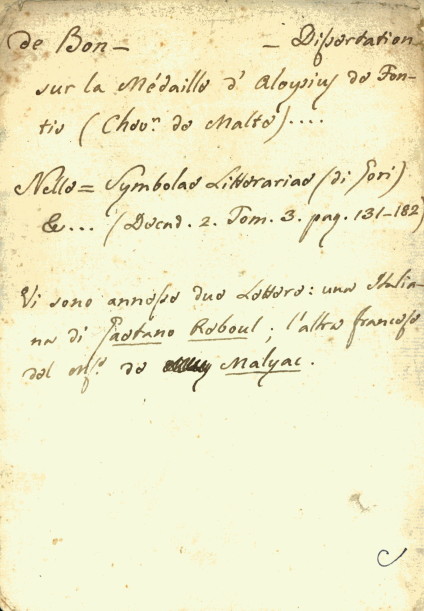 de Bon — — Dissertation
sur la Médaille d' Aloysius de Fon-
tis (Chevn. de Malte) ....
Nelle = Symbolae Litterariae (di Gori)
&... (Decad. 2. Tom. 3. pag. 131-182)
Vi sono annesse due Lettere: una Italia-
na di Gaetano Reboul; l'altra francese
del de Malyac.